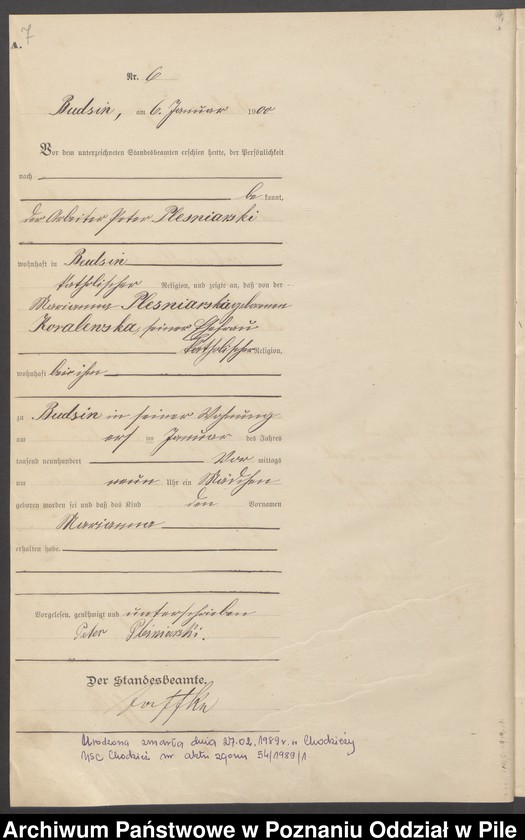 7
A.
Nr. 6
Budsin, am 6. Januar 1900
Vor dem unterzeichneten Standesbeamten erschien heute, der Persönlichkeit
nach
be kannt,
der Arbeiter Peter Plesniarski
wohnhaft in Budsin
katholischer Religion, und zeigte an, daß von der
Marianna Plesniarska geborenen
Kovalewska, seiner Ehefrau
katholischer Religion,
wohnhaft bei ihm
zu Budsin in seiner Wohnung
am ten Januar des Jahres
tausend neunhundert Vor mittags
um neun Uhr ein Mädchen
geboren worden sei und daß das Kind den Vornamen
Marianna
erhalten habe.
Vorgelesen, genehmigt und unterschrieben
Peter Plesniarski.
Der Standesbeamte.
Urodzona zmarła dnia 27.02.1989 r. w Chodzieży
USC Chodzież nr aktu zgonu 54/1989/1
Archiwum Państwowe w Poznaniu Oddział w Pile